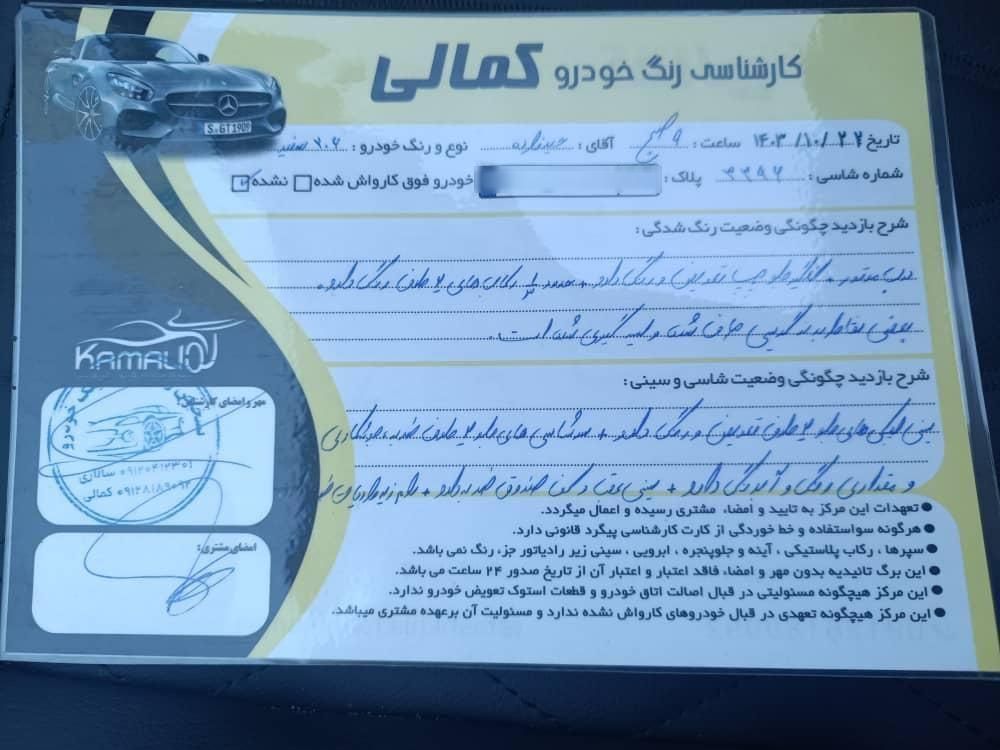 کارشناسی رنگ خودرو کمالی
S.GT1909
تاریخ ۱۴۰۳/۱۰/۲۲ ساعت : ۹ صبح آقای : نوع و رنگ خودرو : ۲۰۶ سفید
شماره شاسی : ۳۳۹۶ پلاک : خودرو فوق کارواش شده نشده
شرح بازدید چگونگی وضعیت رنگ شدگی :
درب موتور + گلگیر جلو چپ تعویض و رنگ دارد + حدود ۱/۳ رکاب های ۲ طرف رنگ دارد.
بعضی نقاط بدنه صافکاری شده و لیسه گیری شده است.
KAMALI
شرح بازدید چگونگی وضعیت شاسی و سینی :
سینی های جلو ۲ طرف تعویض و رنگ دارد + سرشاسی های جلو ۲ طرف ضربه
و مقداری رنگ و آبرنگ دارد + سینی عقب و کف صندوق ضربه دارد +
مهر و امضای کارشناس :
۰۹۱۲۰۴۱۲۳۰۱ سالاری
۰۹۱۲۸۱۸۹۰۹۲ کمالی
امضای مشتری :
● تعهدات این مرکز به تایید و امضاء، مشتری رسیده و اعمال میگردد.
● هرگونه سواستفاده و خط خوردگی از کارت کارشناسی پیگرد قانونی دارد.
● سپرها ، رکاب پلاستیکی ، آینه و جلوپنجره ، ابرویی ، سینی زیر رادیاتور جزء رنگ نمی باشد.
● این برگ تائیدیه بدون مهر و امضاء، فاقد اعتبار و اعتبار آن از تاریخ صدور ۲۴ ساعت می باشد.
● این مرکز هیچگونه مسئولیتی در قبال اصالت اتاق خودرو و قطعات استوک تعویض خودرو ندارد.
● این مرکز هیچگونه تعهدی در قبال خودروهای کارواش نشده ندارد و مسئولیت آن برعهده مشتری میباشد.